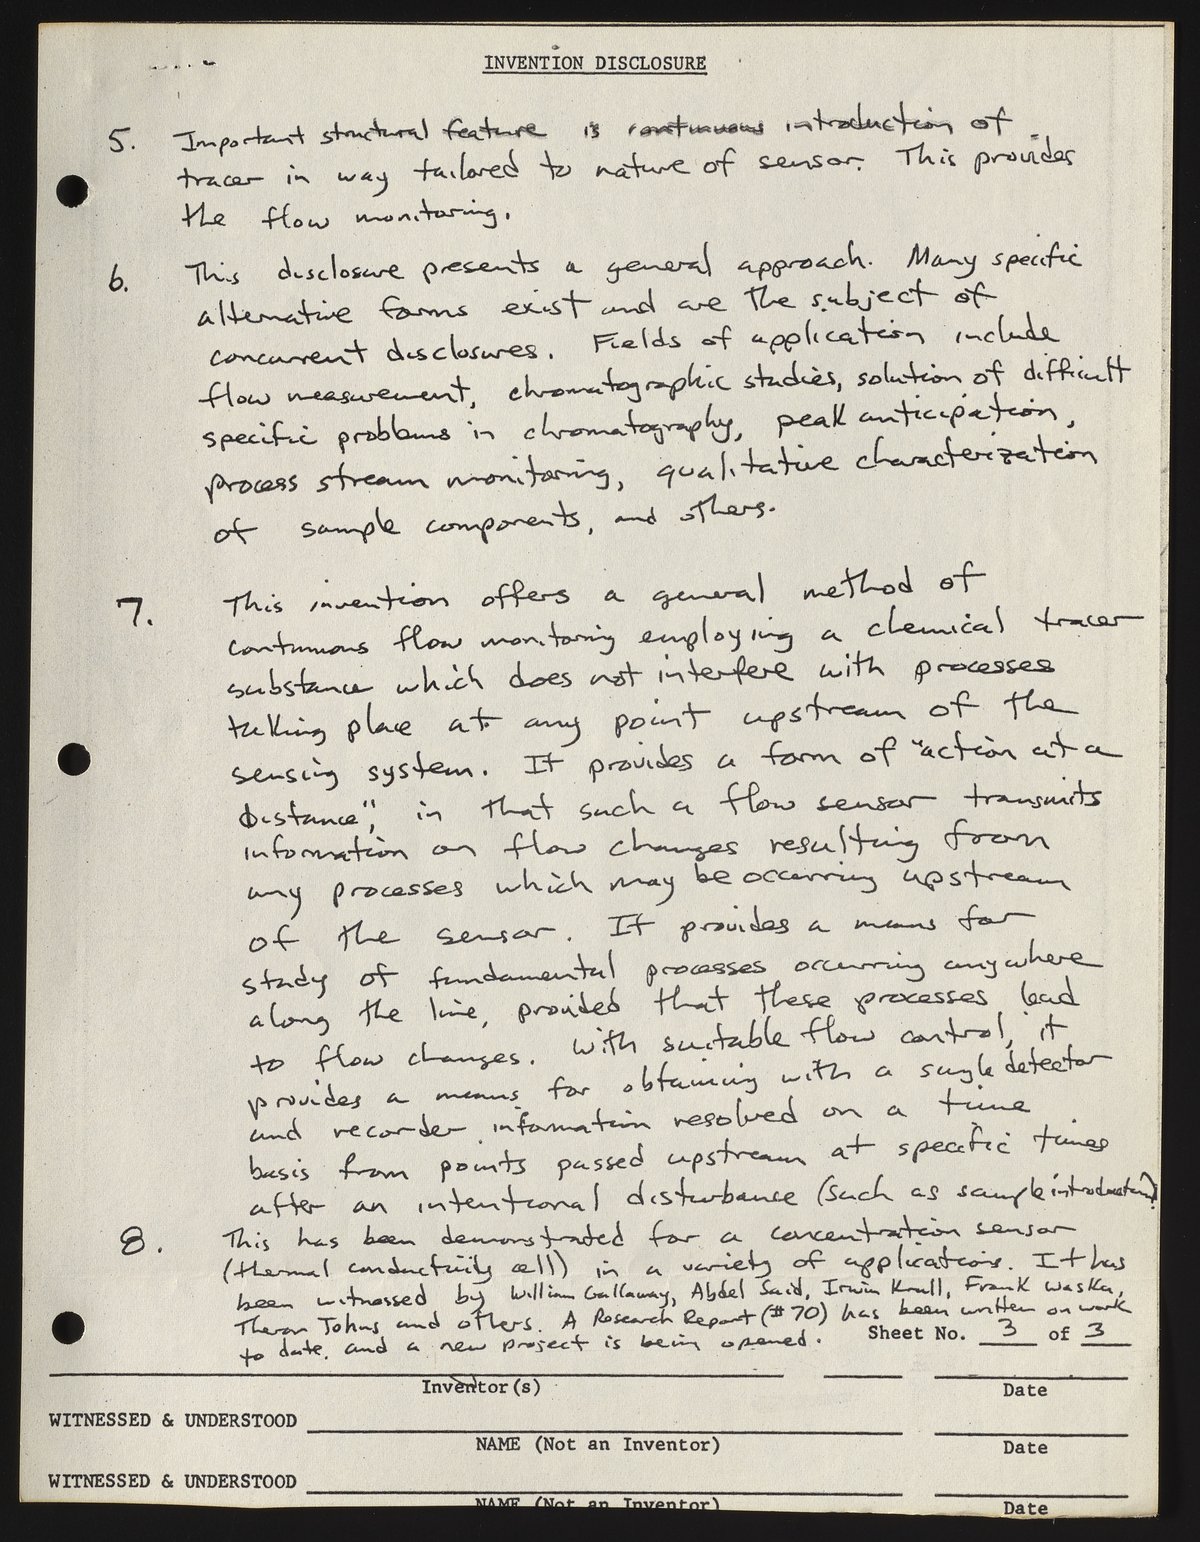 INVENTION DISCLOSURE
5. Important structural feature is continuous introduction of
tracer in way tailored to nature of sensor. This provides
the flow monitoring.
6. This disclosure presents a general approach. Many specific
alternative forms exist and are the subject of
concurrent disclosures. Fields of application include
flow measurement, chromatographic studies, solution of difficult
specific problems in chromatography, peak anticipation,
process stream monitoring, qualitative characterization
of sample components, and others.
7. This invention offers a general method of
continuous flow monitoring employing a chemical tracer
substance which does not interfere with processes
taking place at any point upstream of the
sensing system. It provides a form of "action at a
distance", in that such a flow sensor transmits
information on flow changes resulting from
any processes which may be occurring upstream
of the sensor. It provides a means for
study of fundamental processes occurring anywhere
along the line, provided that these processes lead
to flow changes. With suitable flow control, it
provides a means for obtaining with a single detector
and recorder information resolved on a time
basis from points passed upstream at specific times
after an intentional disturbance (such as sample introduction).
8. This has been demonstrated for a concentration sensor
(thermal conductivity cell) in a variety of applications. It has
been witnessed by William Gallaway, Abdel Said, Irwin Krull, Frank Waska,
Theron Johns and others. A Research Report (#70) has been written on work
to date, and a new project is being opened.
Sheet No. 3 of 3
Inventor(s) Date
WITNESSED & UNDERSTOOD
NAME (Not an Inventor) Date
WITNESSED & UNDERSTOOD
NAME (Not an Inventor) Date